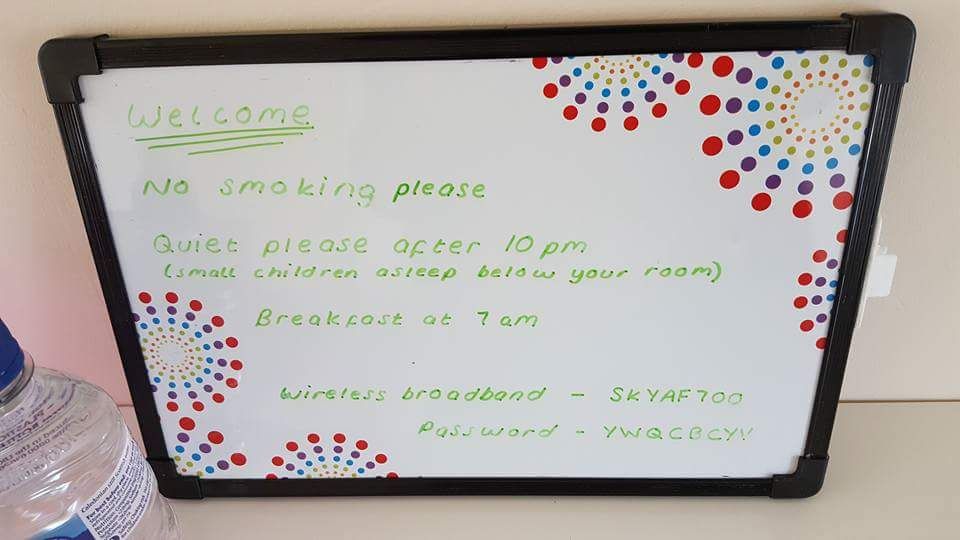 Welcome
No smoking please
Quiet please after 10pm
(small children asleep below your room)
Breakfast at 7am
Wireless broadband - SKYAF700
Password -
Caledonian